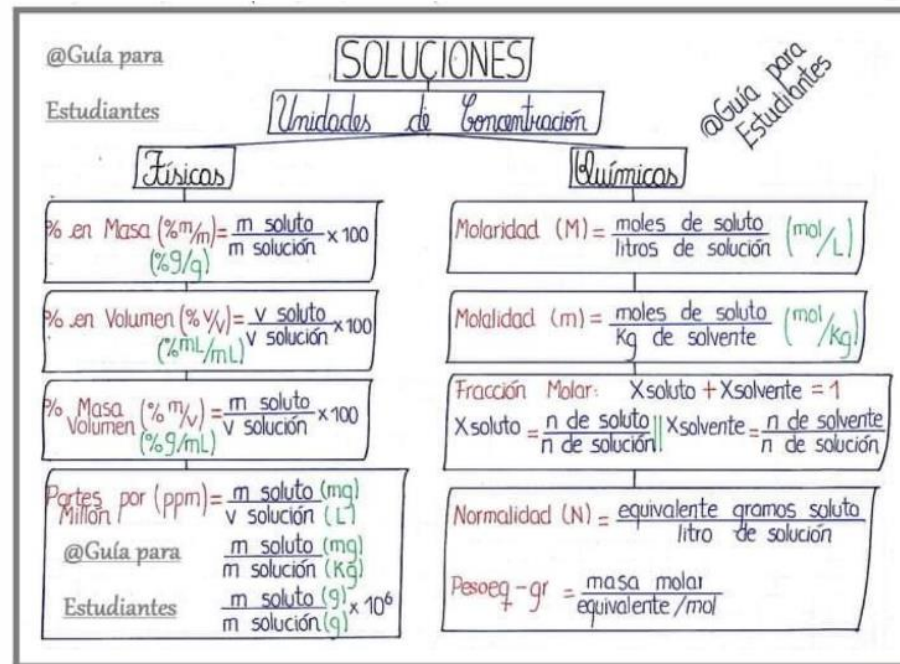 @Guía para
Estudiantes
SOLUCIONES
@Guía para
Estudiantes
Unidades de Concentración
Físicas
% en Masa (% m/m) = m soluto / m solución × 100
(% g/g)
% en Volumen (% v/v) = v soluto / v solución × 100
(% mL/mL)
% Masa Volumen (% m/v) = m soluto / v solución × 100
(% g/mL)
Partes por Millón (ppm) = m soluto (mg) / v solución (L)
m soluto (mg) / m solución (Kg)
m soluto (g) / m solución (g) × 10⁶
@Guía para
Estudiantes
Químicas
Molaridad (M) = moles de soluto / litros de solución (mol/L)
Molalidad (m) = moles de soluto / Kg de solvente (mol/Kg)
Fracción Molar: X soluto + X solvente = 1
X soluto = n de soluto / n de solución || X solvente = n de solvente / n de solución
Normalidad (N) = equivalente gramos soluto / litro de solución
Peso eq - gr = masa molar / equivalente/mol